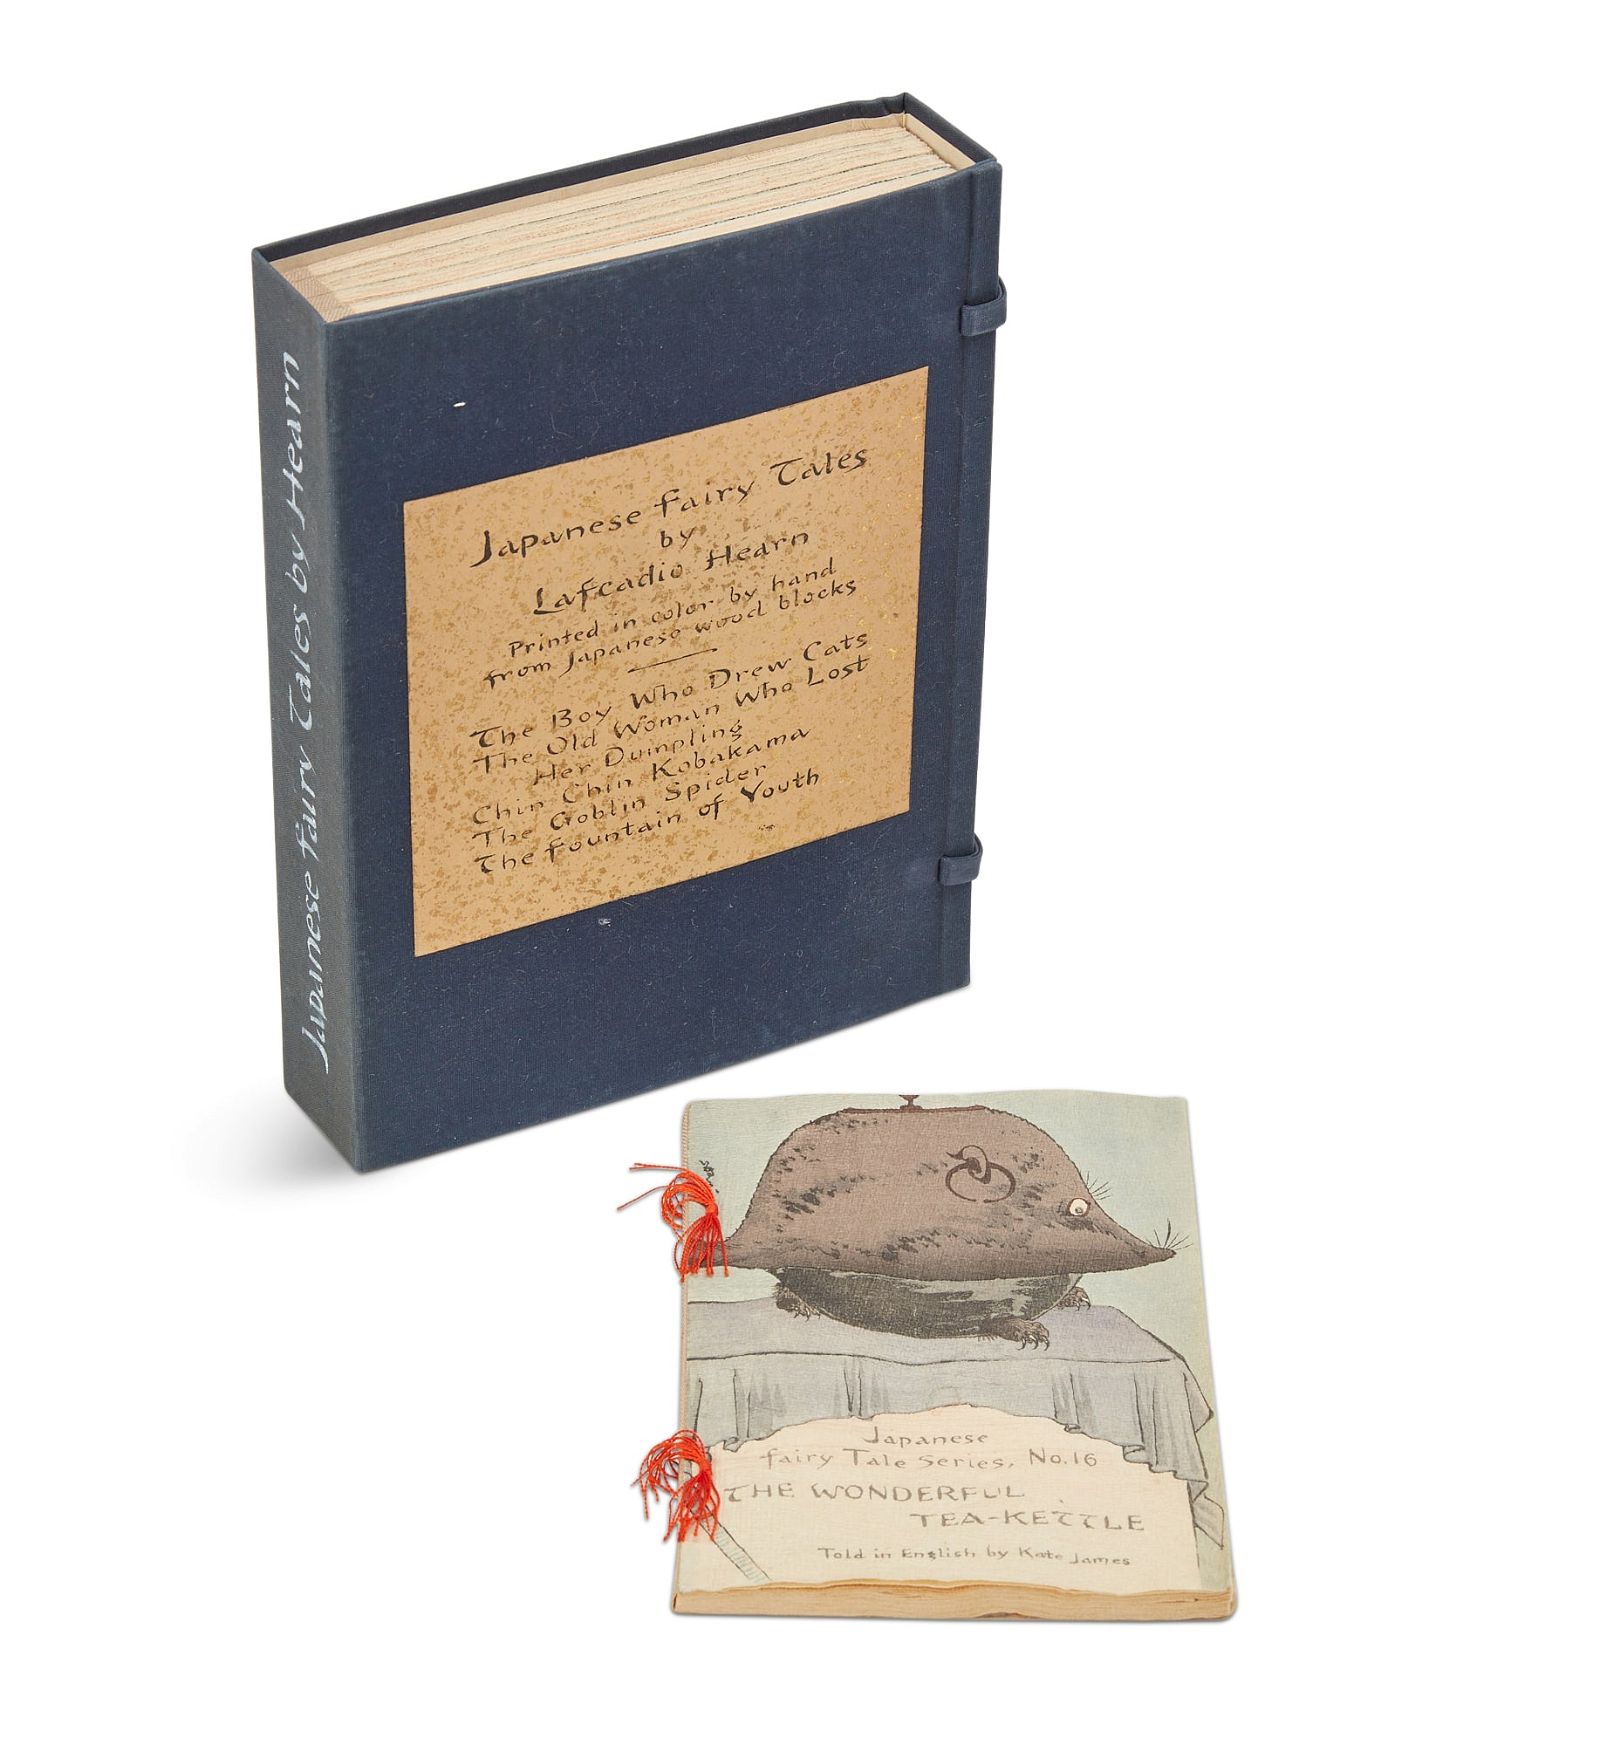 Japanese Fairy Tales by Hearn
Japanese Fairy Tales
by
Lafcadio Hearn
Printed in color by hand
from Japanese wood blocks
The Boy Who Drew Cats
The Old Woman Who Lost
Her Dumpling
Chin Chin Kobakama
The Goblin Spider
The Fountain of Youth
Japanese
Fairy Tale Series, No.16
THE WONDERFUL
TEA-KETTLE
Told in English by Kate James